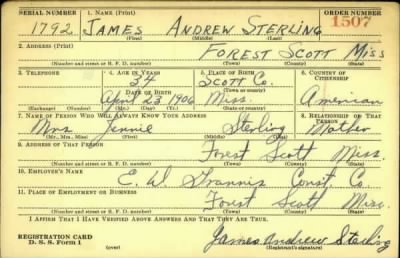 SERIAL NUMBER 1. NAME (Print) ORDER NUMBER
1792 JAMES ANDREW STERLING 1507
(First) (Middle) (Last)
2. ADDRESS (Print)
FOREST SCOTT MISS
(Number and street or R. F. D. number) (Town) (County) (State)
3. TELEPHONE 4. AGE IN YEARS 5. PLACE OF BIRTH 6. COUNTRY OF CITIZENSHIP
34 Scott Co.
DATE OF BIRTH (Town or county)
April 23 1906 Miss. American
(Exchange) (Number) (Mo.) (Day) (Yr.) (State or country)
7. NAME OF PERSON WHO WILL ALWAYS KNOW YOUR ADDRESS 8. RELATIONSHIP OF THAT PERSON
Mrs. Jennie Sterling Mother
(Mr., Mrs., Miss) (First) (Middle) (Last)
9. ADDRESS OF THAT PERSON
Forest Scott Miss.
(Number and street or R. F. D. number) (Town) (County) (State)
10. EMPLOYER'S NAME
E. W. Const. Co.
11. PLACE OF EMPLOYMENT OR BUSINESS
Forest Scott Miss.
(Number and street or R. F. D. number) (Town) (County) (State)
I AFFIRM THAT I HAVE VERIFIED ABOVE ANSWERS AND THAT THEY ARE TRUE.
REGISTRATION CARD
D. S. S. Form 1 (over) James Andrew Sterling
(Registrant's signature)